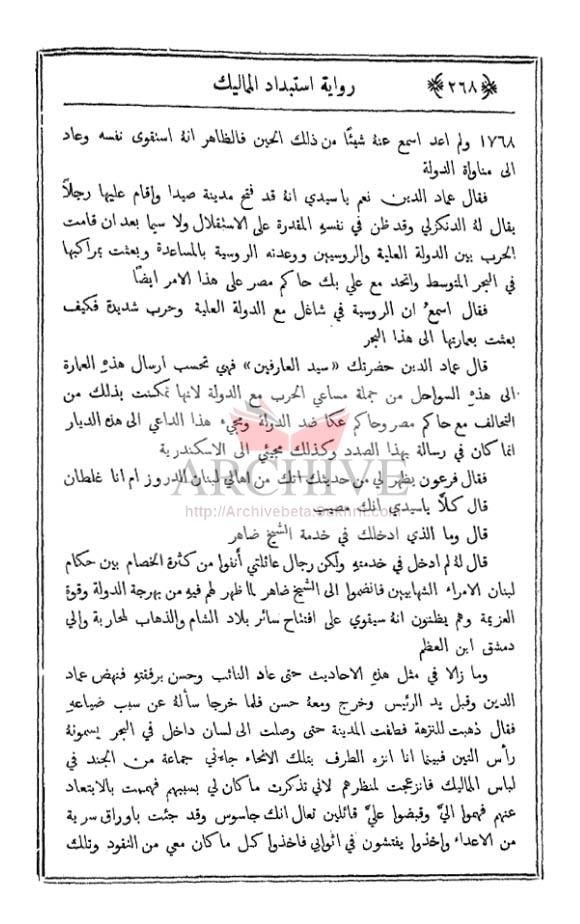 ﴿٢٦٨﴾ رواية استبداد الماليك
١٧٦٨ ولم اعد اسمع عنهُ شيئًا من ذلك الحين فالظاهر انهُ استقوى نفسه وعاد
الى مناواة الدولة
فقال عماد الدين نعم يا سيدي انهُ قد فتح مدينة صيدا وإقام عليها رجلاً
يقال لهُ الدنكرلي وقد ظن في نفسهِ المقدرة على الاستقلال ولا سيما بعد ان قامت
الحرب بين الدولة العلية والروسيين ووعدته الروسية بالمساعدة وبعثت بمراكبها
في البحر المتوسط واتحد مع علي بك حاكم مصر على هذا الامر ايضًا
فقال اسمعُ ان الروسية في شاغل مع الدولة العلية وحرب شديدة فكيف
بعثت بعمارتها الى هذا البحر
قال عماد الدين حضرتك «سيد العارفين» فهي تحسب ارسال هذهِ العمارة
الى هذهِ السواحل من جملة مساعي الحرب مع الدولة لانها تمكنت بذلك من
التحالف مع حاكم مصر وحاكم عكا ضد الدولة ومجيءُ هذا الداعي الى هذه الديار
انما كان في رسالة بهذا الصدد وكذلك مجيئي الى الاسكندرية
فقال فرعون يظهر لي من حديثك انك من اهالي لبنان الدروز ام انا غلطان
قال كلاَّ يا سيدي انك مصيب
قال وما الذي ادخلك في خدمة الشيخ ضاهر
قال له لم ادخل في خدمتهِ ولكن رجال عائلتي أنفوا من كثرة الخصام بين حكام
لبنان الامراء الشهابيين فانضموا الى الشيخ ضاهر لما ظهر لهم فيهِ من بهرجة الدولة وقوة
العزيمة وهم يظنون انه سيقوى على افتتاح سائر بلاد الشام والذهاب لمحاربة والي
دمشق ابن العظم
وما زالا في مثل هذهِ الاحاديث حتى عاد النائب وحسن برفقتهِ فنهض عماد
الدين وقبل يد الرئيس وخرج ومعهُ حسن فلما خرجا سألهُ عن سبب ضياعهِ
فقال ذهبت للنزهة فطفت المدينة حتى وصلت الى لسان داخل في البحر يسمونهُ
رأس التين فبينما انا انزه الطرف بتلك الانحاء جاءني جماعة من الجند في
لباس الماليك فانزعجت لمنظرهم لاني تذكرت ما كان لي بسببهم فهممت بالابتعاد
عنهم فهموا اليَّ وقبضوا عليَّ قائلين تعال انك جاسوس وقد جئت باوراق سرية
من الاعداء وإخذوا يفتشون في اثوابي فاخذوا كل ما كان معي من النقود وتلك
ARCHIVE